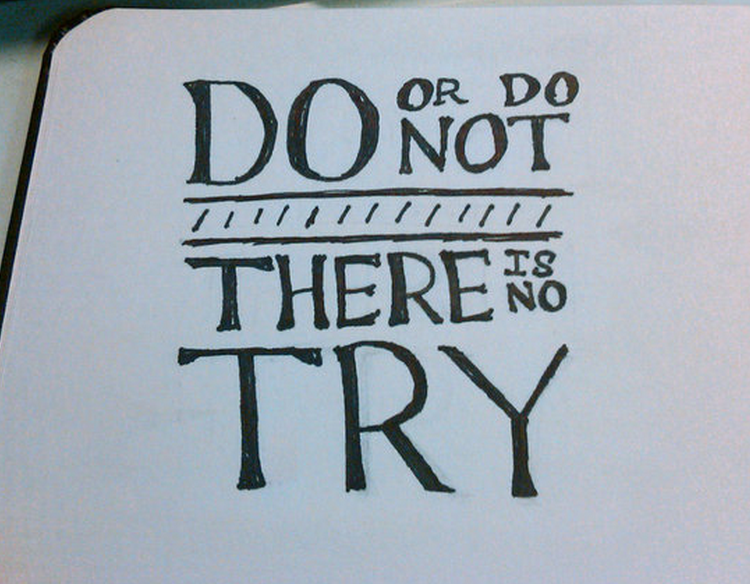 DO OR DO
NOT
THERE IS
NO
TRY